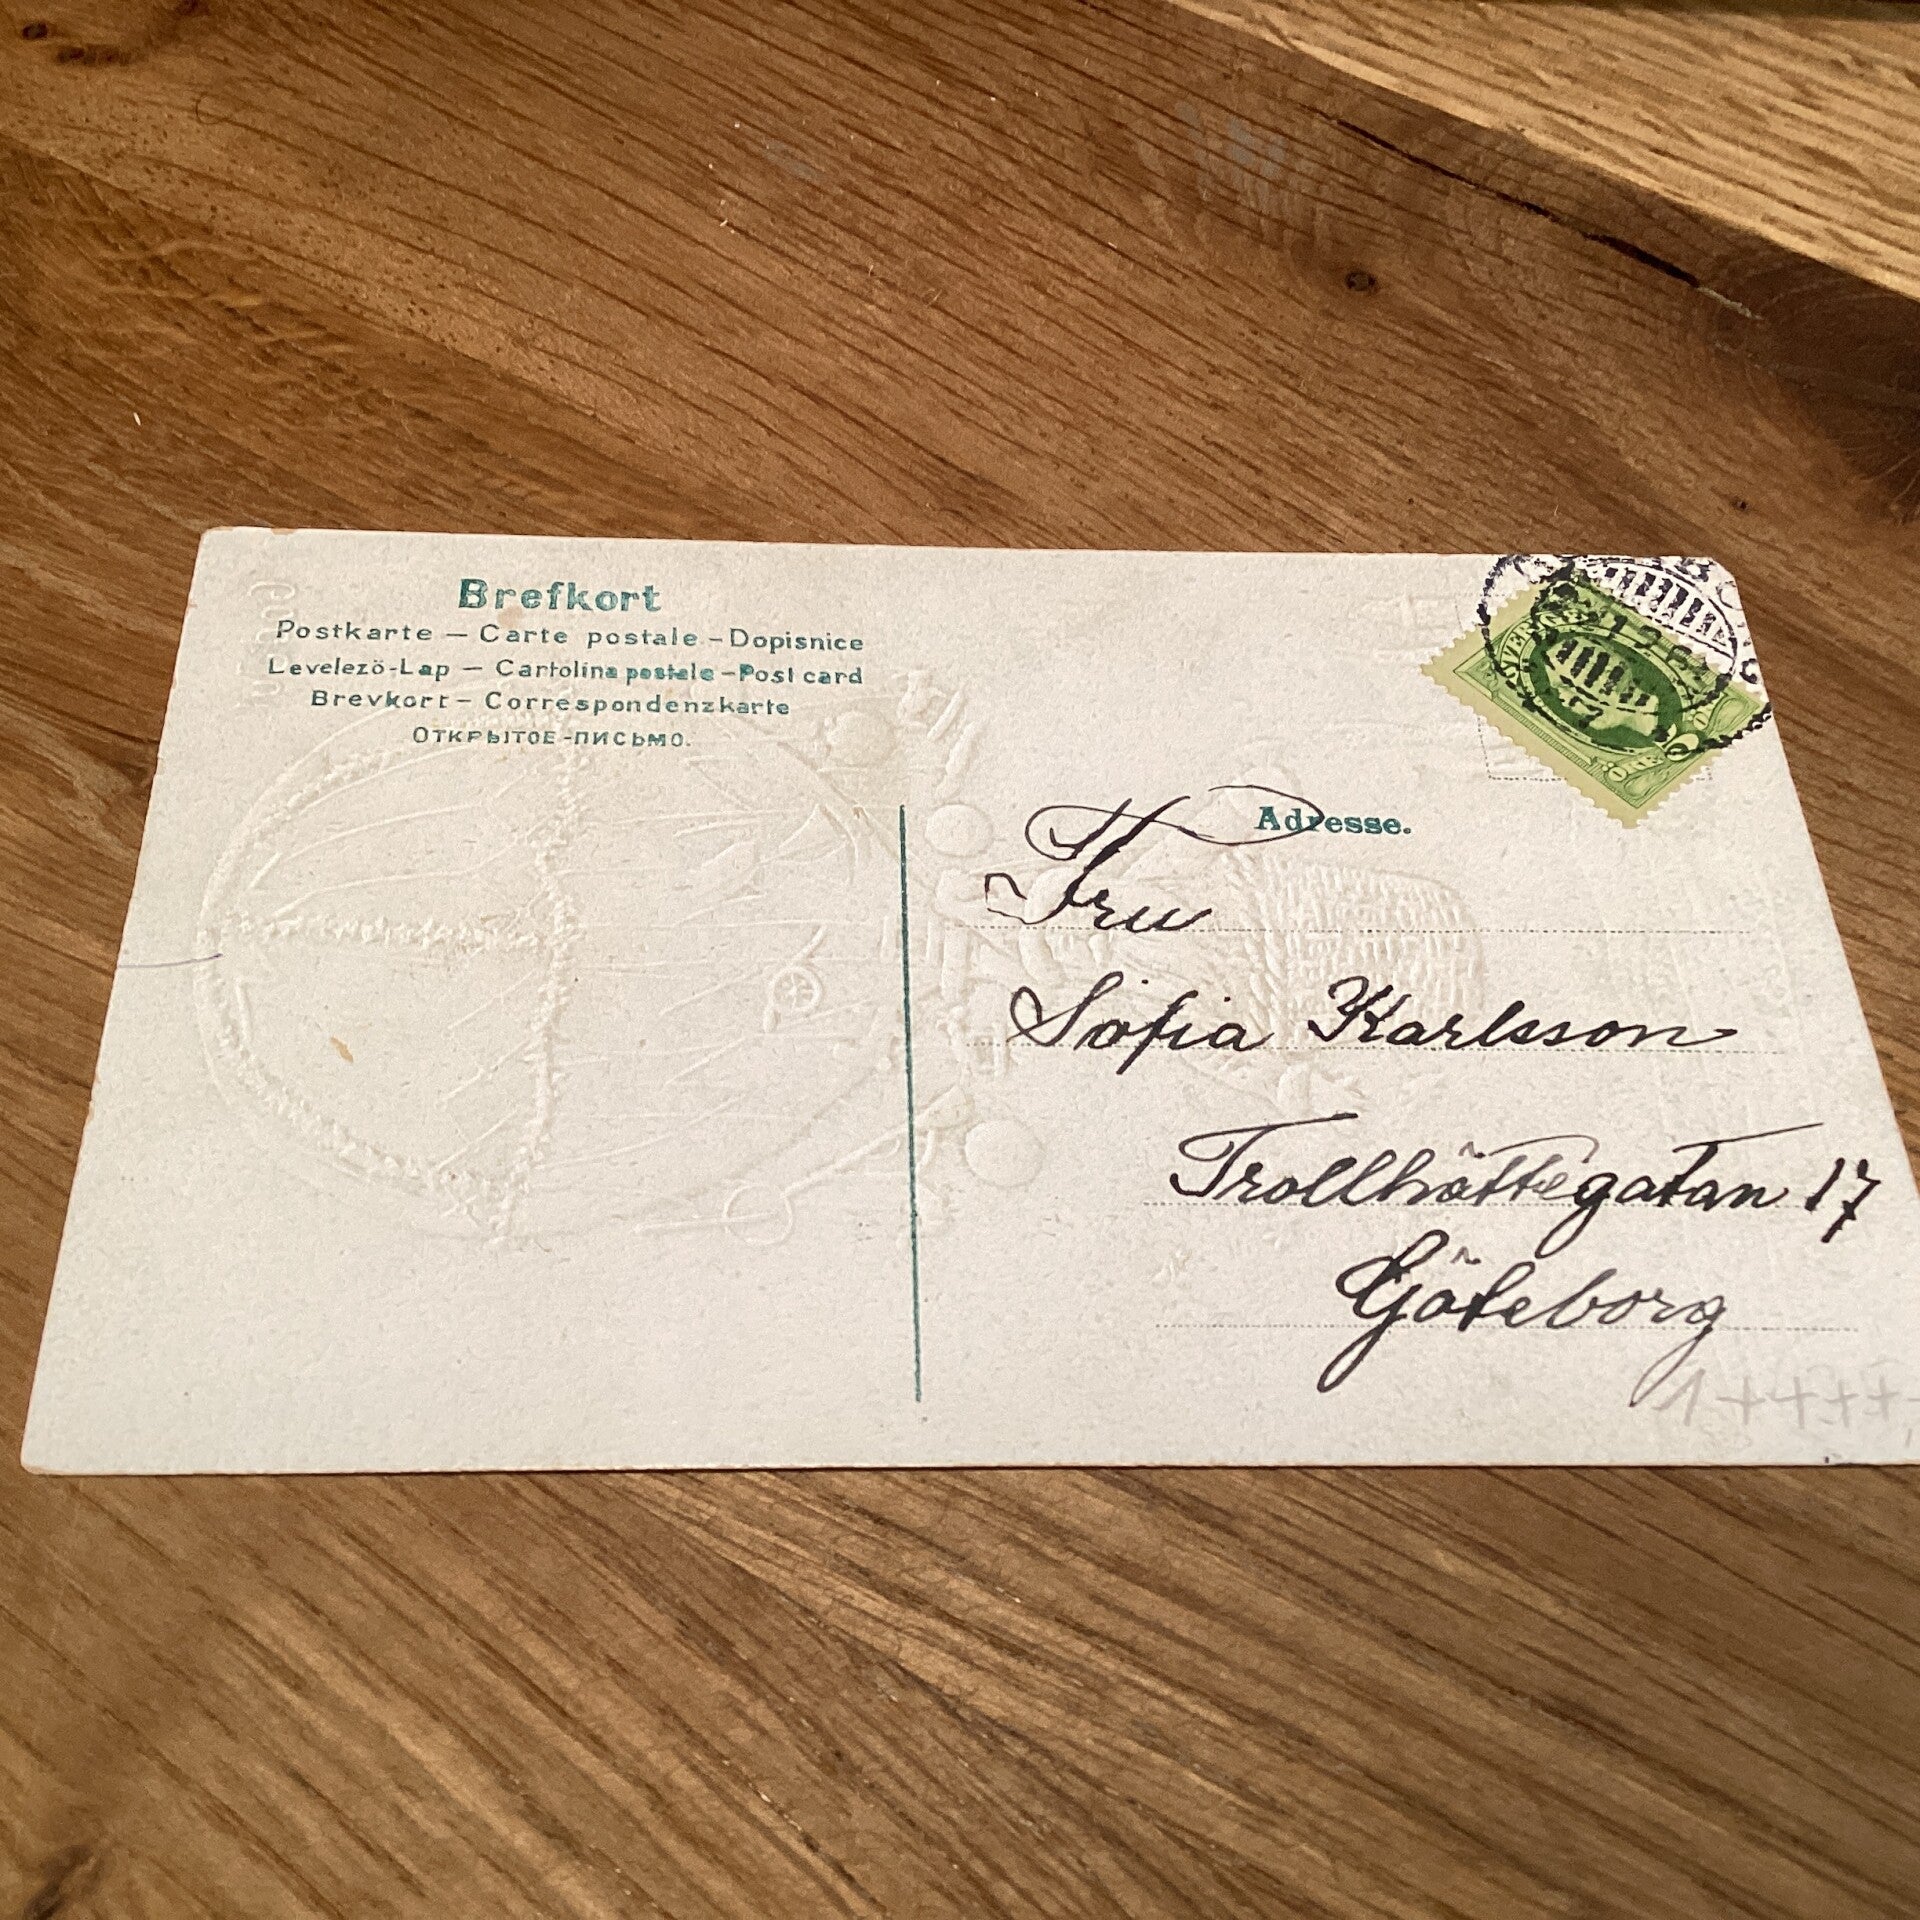 Brefkort
Postkarte – Carte postale – Dopisnice
Levelezö-Lap – Cartolina postale – Post card
Brevkort – Correspondenzkarte
ОТКРЫТОЕ-ПИСЬМО.
SVERIGE
5 ÖRE
Adresse.
Fru
Sofia Karlsson
Trollhättegatan 17
Göteborg
1+++++